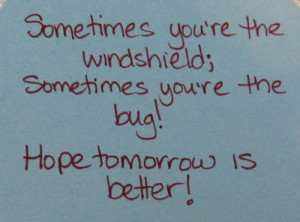 Sometimes you're the
windshield;
Sometimes you're the
bug!
Hope tomorrow is
better!